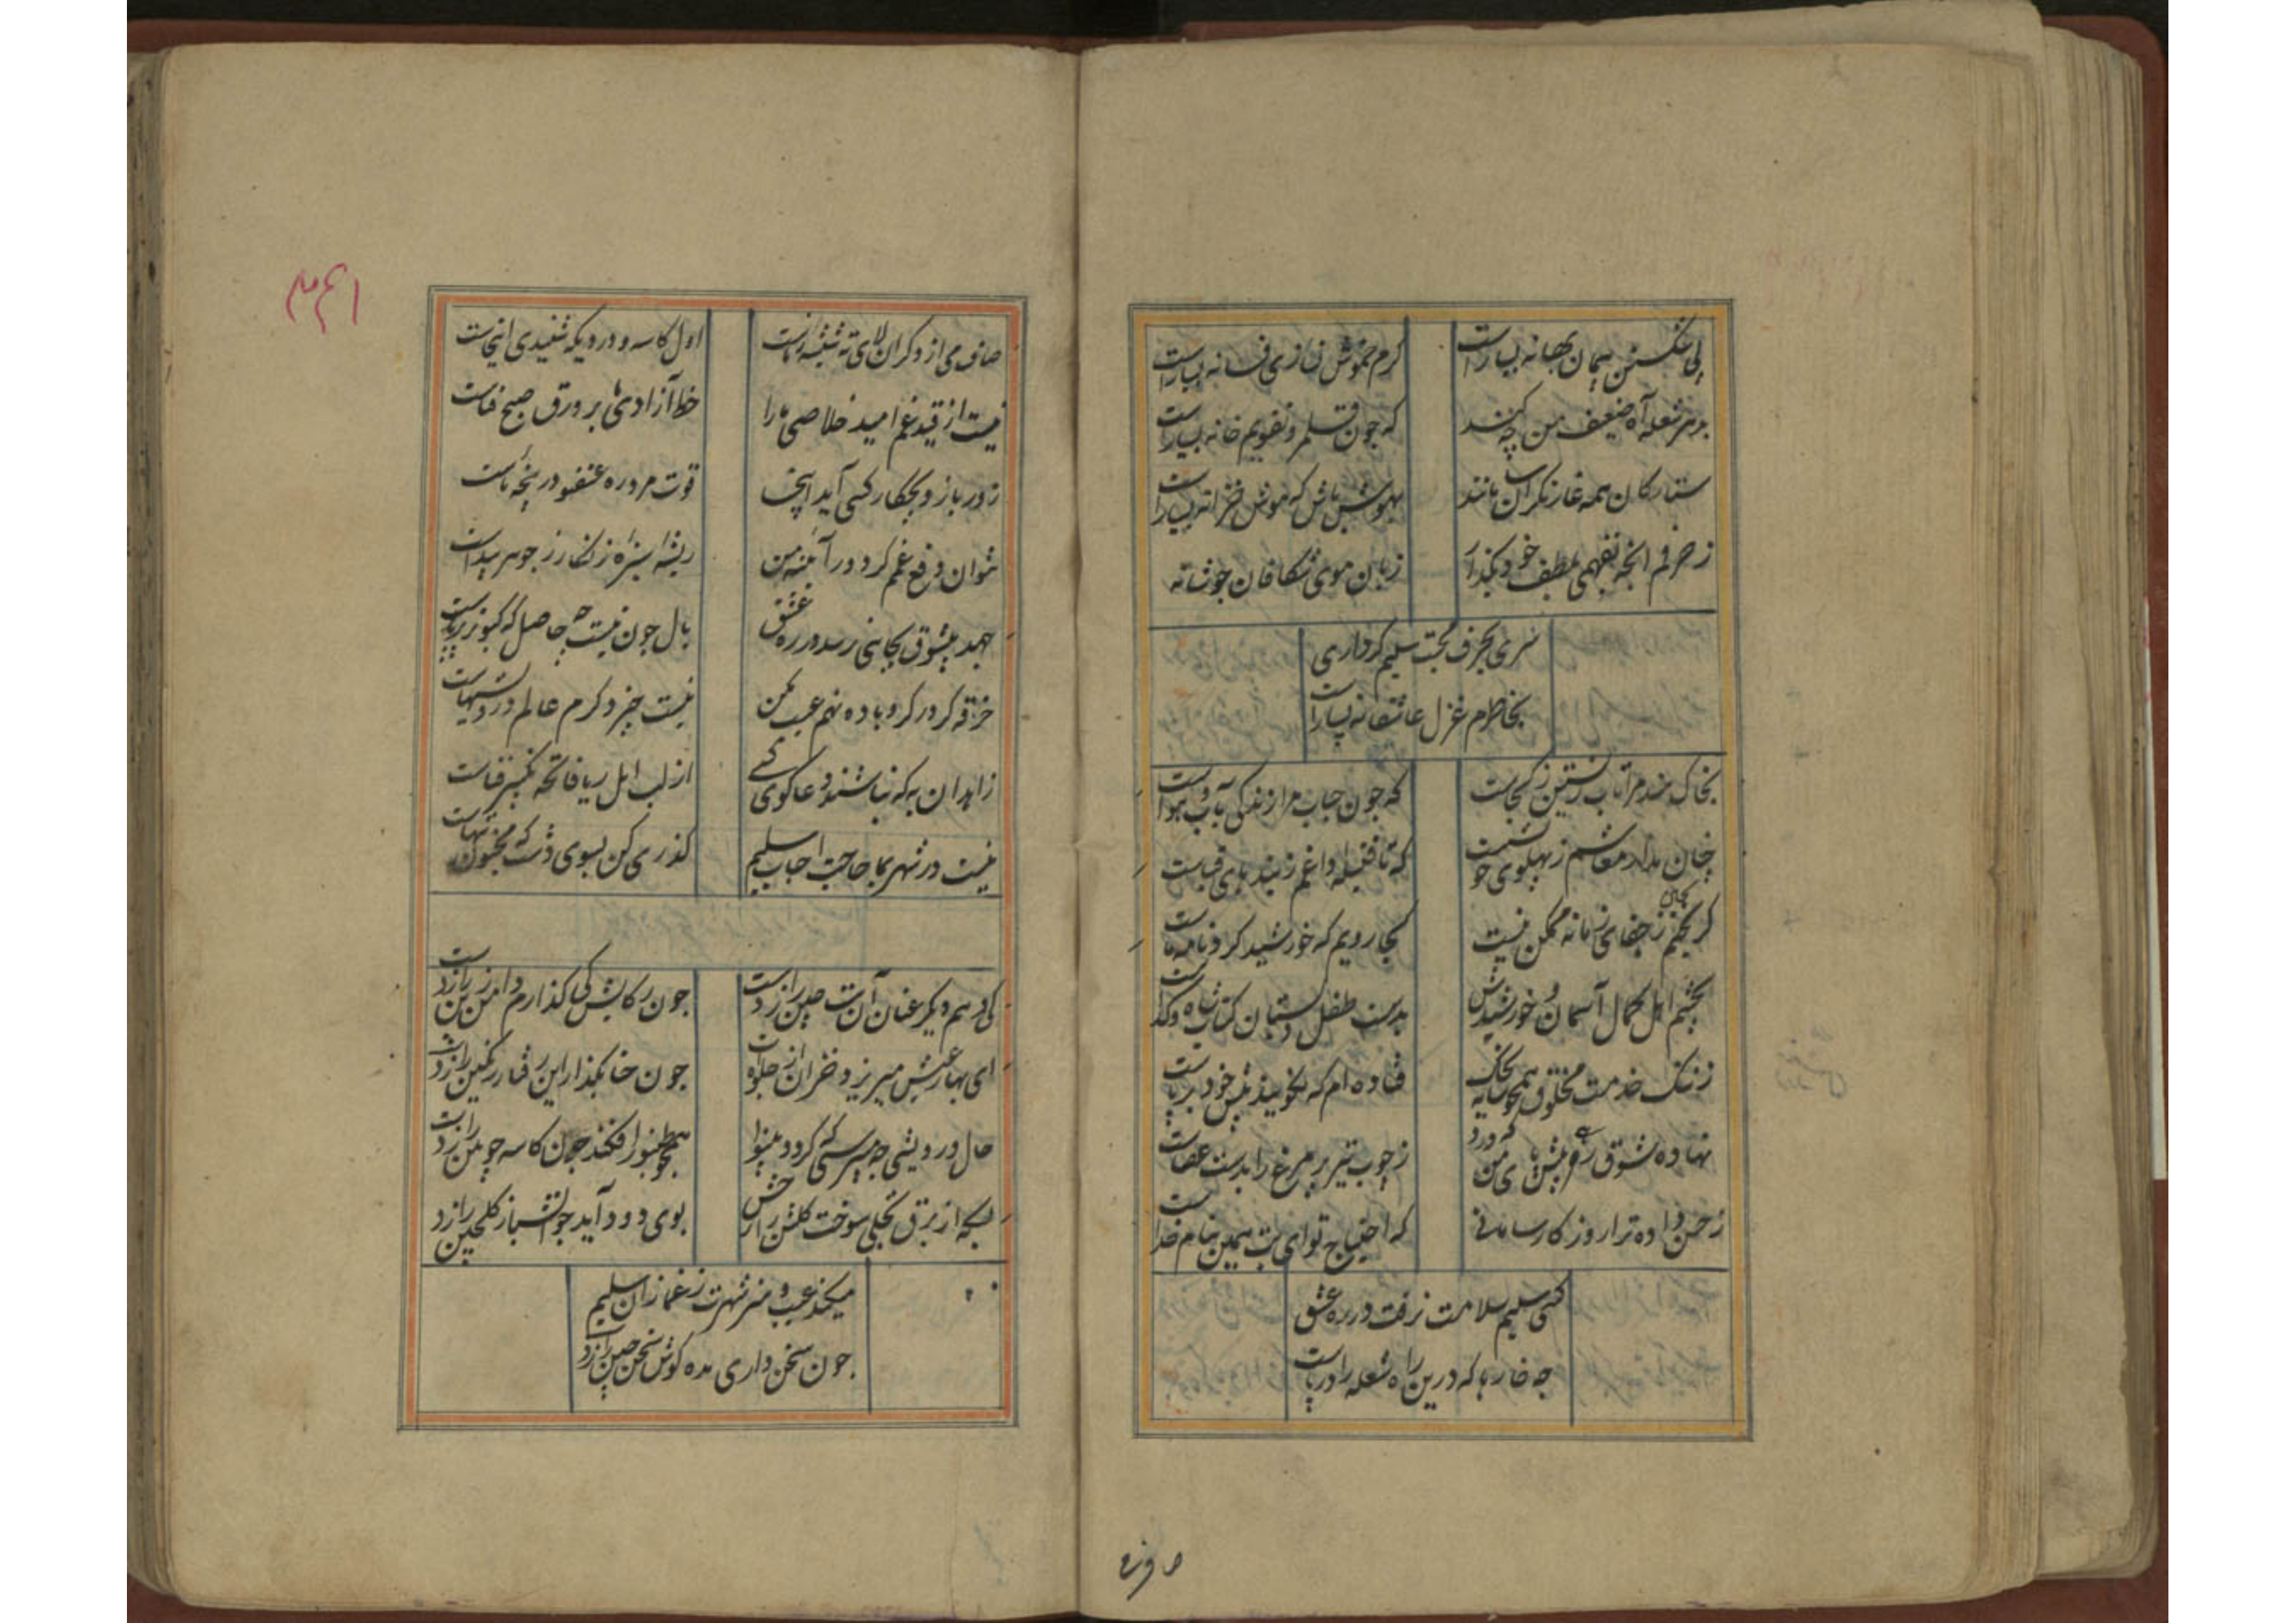 پی شکستن پیمان بهانه بسیار است
کرم خموش فسانه بسیار است
بهر شعله آه ضعیف من چه کند
که چون قلمرو تقویم خانه بسیار است
ستارکان همه غارتکران
بهوش باش که موش خزانه بسیار است
زحرفم انچه نفهمی بلطف خود بکذر
زبان موی شکافان چو شانه
سری بحرف محبت سلیم کر داری
بخاطرم غزل عاشقانه بسیار است
بخاک هند مرا تاب زیستن ز کجاست
که چون حباب مرا زندکی بآب و هواست
چنان مدار معاشم ز پهلوی
که تا فتیله داغم ز بندهای قباست
کریختن ز جفای زمانه ممکن نیست
کجا رویم که خورشید کرد نامه ماست
بچشم اهل کمال آسمان و خورشیدش
بدست طفل دبستان کتاب شاه و کداست
ز ننک خدمت مخلوق همچو سایه بخاک
فتاده ام که نخویند پیش خود بر پاست
نهاده شوق رهی پیش پای من که درو
ز چوب تیر پر مرغ را بدست عصاست
ز حسن داده ترا روزکار سامانی
که احتیاج تو ای بت همین بنام خداست
کسی سلیم سلامت نرفت در ره عشق
چه خارها که درین راه شعله را در پاست
صاف می از دکران لای ته شیشه ز ماست
اول کاسه و دردی که شنیدی اینجاست
نیست از قید غم امید خلاصی ما را
خط آزادی ما بر ورق صبح فناست
زور بازو بچه کار کسی آید اینجا
قوت مرد ره عشق در پنجه ماست
نتوان دفع غم کرد در آئینه من
ریشه سبزه زنکار ز جوهر پیداست
جهد بیشوق بجائی نرسد در ره عشق
بال چون نیست چه حاصل که کبوتر بر پاست
خرقه کر در کرو باده نهم عیب مکن
نیست چیزی دکرم عالم درویشیهاست
زاهدان به که نباشند دعا کوی کسی
از لب اهل ریا فاتحه تکبیر فناست
نیست در شهر بما حاجت احباب سلیم
کذری کن بسوی دشت که مجنون تنهاست
کی دهم دیکر عنان آن بت چین را ز دست
چون رکابش کی کذارم دامن زین را ز دست
ای بهار عیش میریزد خزان از جلوه ات
چون حنا مکذار این رفتار رنکین را ز دست
حال درویشی چه میپرسی که کردد بینوا
همچو طنبور افکند چون کاسه چوبین را ز دست
بسکه از برق تجلی سوخت کلشن را رخش
بوی دود آید چو آتشباز کلچین را ز دست
میکند عیب و هنر شهرت ز غمازان سلیم
چون سخن داری مده کوش سخن چین را ز دست